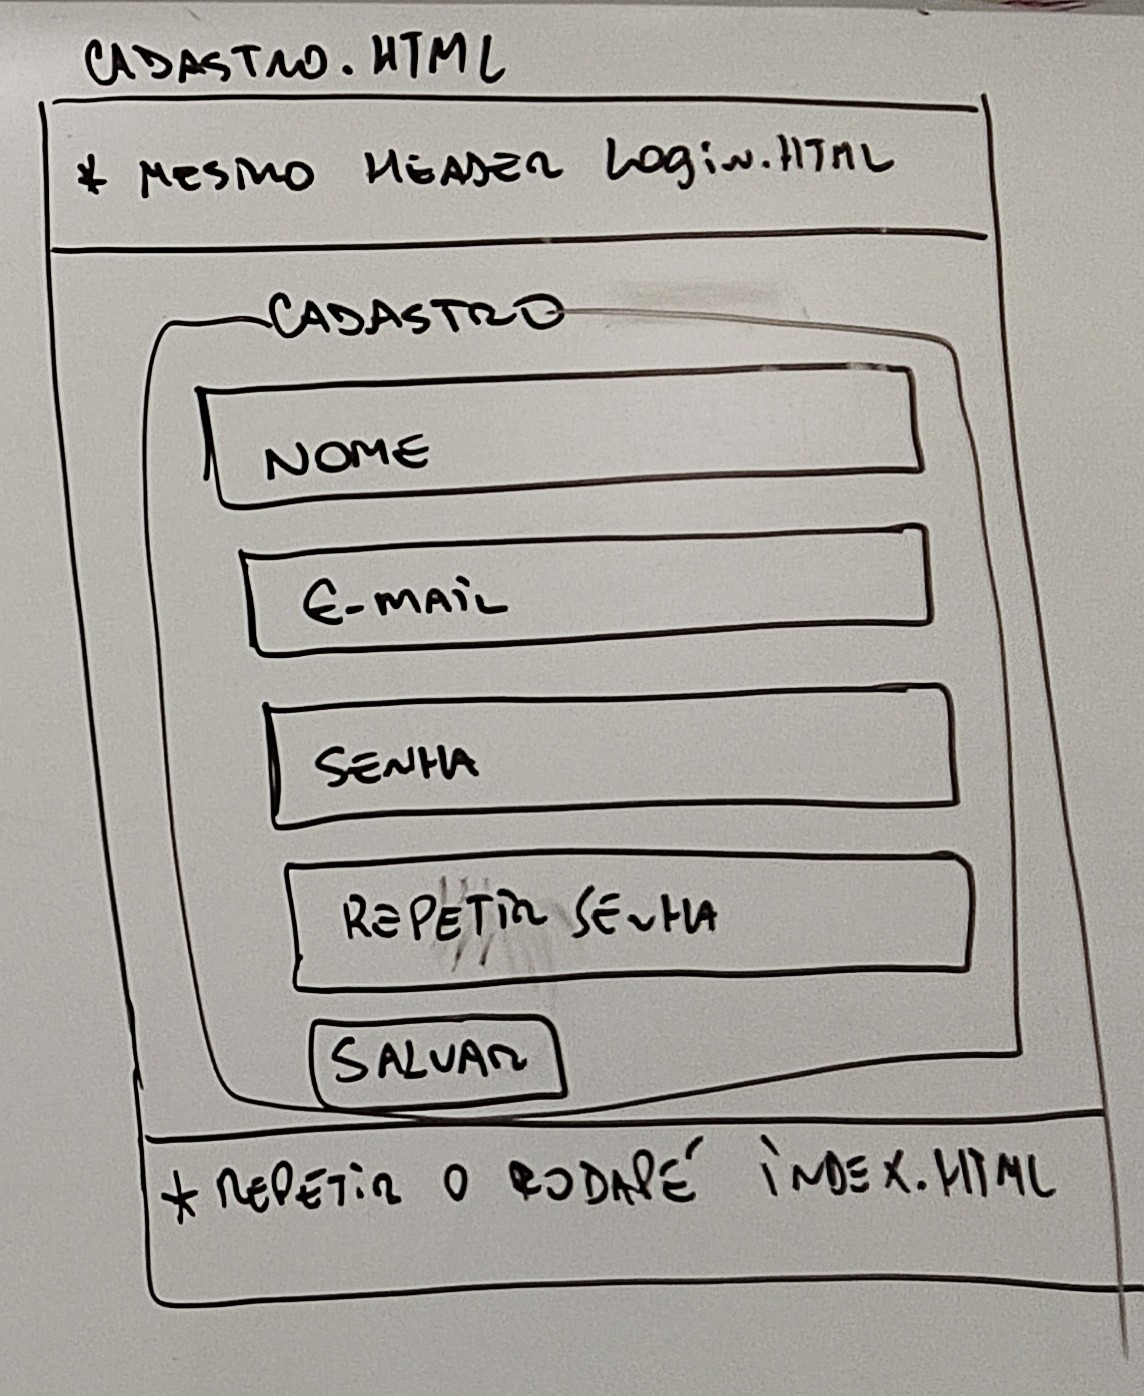 CADASTRO.HTML
* MESMO HEADER LOGIN.HTML
CADASTRO
NOME
E-MAIL
SENHA
REPETIR SENHA
SALVAR
* REPETIR O RODAPÉ INDEX.HTML